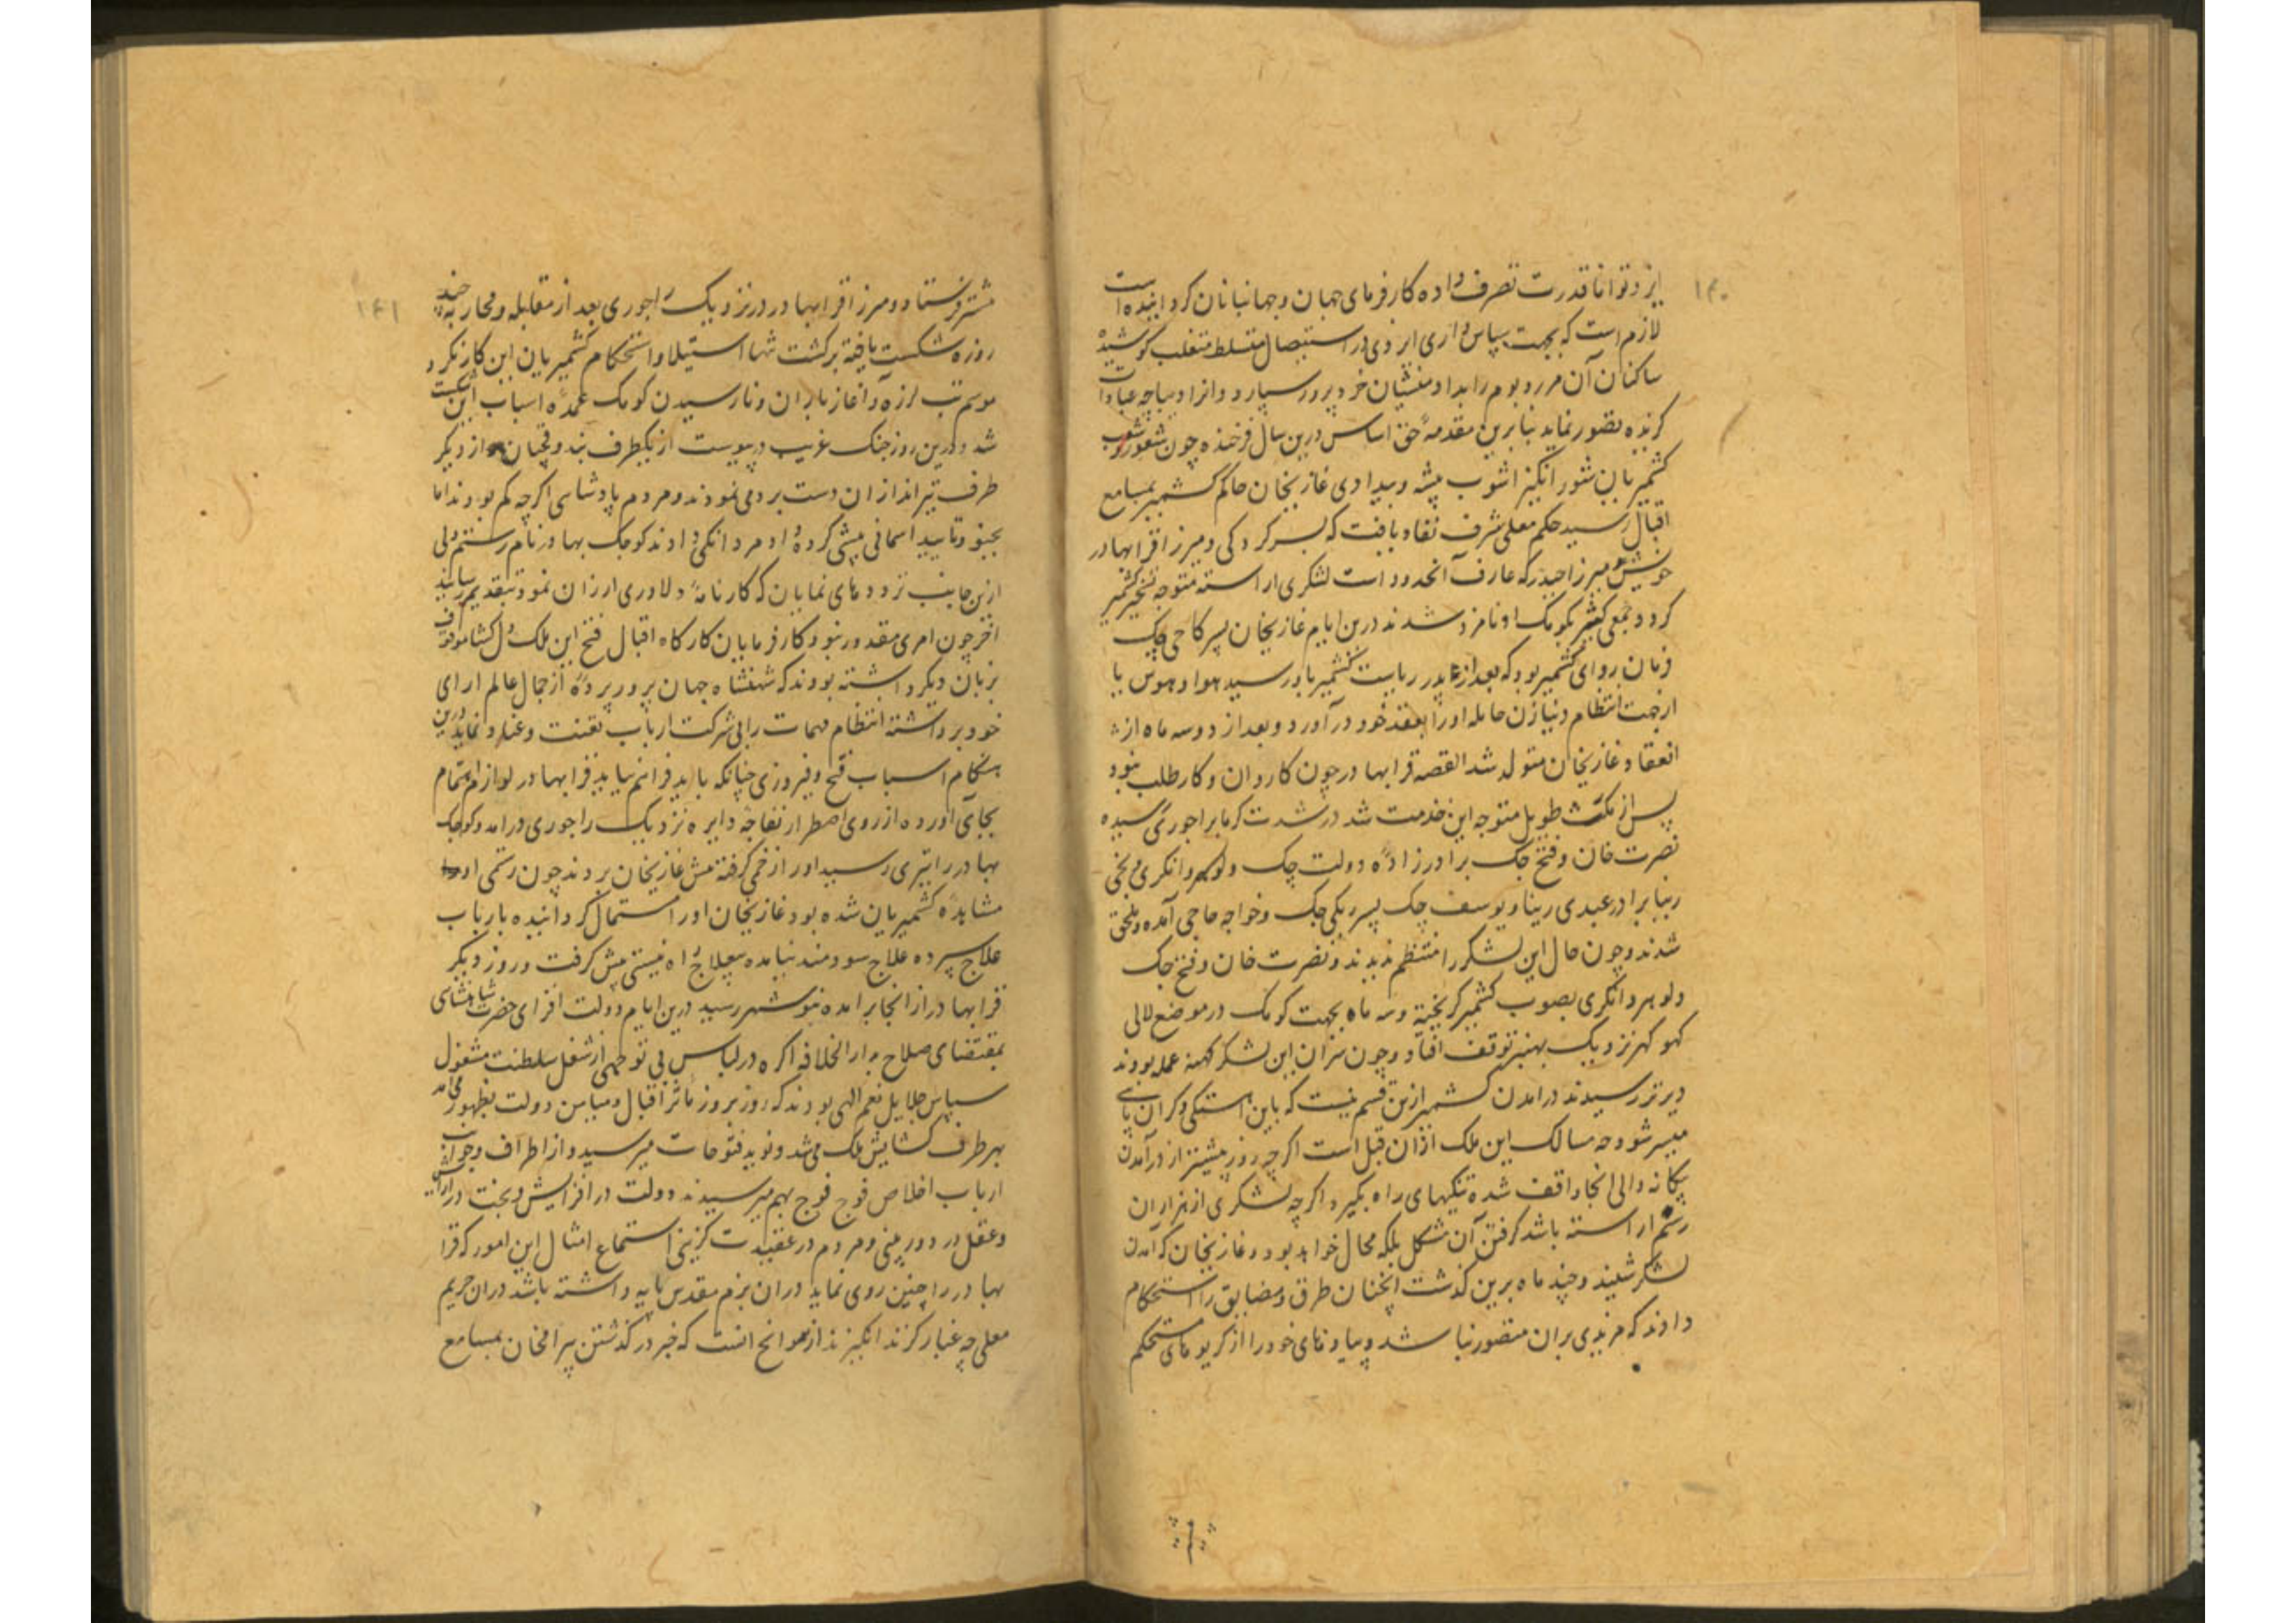 ۱۴۰
ایزد توانا قدرت تصرف داده کارفرمای جهان و جهانبانان کردانیده است
لازم است که بجهت سپاس داری ایزدی در استیصال متسلط متغلب کوشیده
ساکنان آن مرز و بوم را بداد منشیان خرد پرور سپارد و انرا دیباچه عبادات
کزیده تصور نماید بنابرین مقدمهٔ حق اساس درین سال فرخنده چون شعور
کشمیریان شور انکیز اشوب پیشه و بیدادی غازیخان حاکم کشمیر بمسامع
اقبال رسید حکم معلی شرف نفاد یافت که بسرکردکی میرزا قرا بهادر
خویش میرزا حیدر که عارف آنحدود است لشکری اراسته متوجه تسخیر کشمیر
کردد و جمعی کثیر بکومک او نامزد شدند درین ایام غازیخان پسر کاجی چک
فرمان روای کشمیر بود که بعد از پدر ریاست کشمیر باو رسید هوا و هوس یا
ازجهت انتظام دنیا زن حامله او را بعقد خود درآورد و بعد از دو سه ماه از
انعقاد غازیخان متولد شد القصه قرا بهادر چون کاردان و کارطلب نبود
پس از مکث طویل متوجه این خدمت شد در شدت کرما براجوری رسیده
نصرت خان و فتح چک برادرزادهٔ دولت چک و لوهر وانکری و نجی
رینا برادر عیدی رینا و یوسف چک پسر ریکی چک و خواجه حاجی آمده ملحق
شدند و چون حال این لشکر را منتظم ندیدند نصرت خان و فتح چک
و لوهر وانکری بصوب کشمیر کریخته و سه ماه بجهت کومک در موضع لالی
کهوکهر نزدیک بهنبر توقف افتاد و چون سران این لشکر کهنه عمله بودند
دیرتر رسیدند درامدن کشمیر ازین قسم نیست که باین اهستکی و کران پای
میسر شود چه مسالک این ملک ازان قبل است اکر چند روز پیشتر از درآمدن
بیکانه والی انجا واقف شده تنکیهای راه بکیرد اکر چه لشکری از هزاران
رستم اراسته باشد کرفتن آن مشکل بلکه محال خواهد بود و غازیخان که آمدن
لشکر شنید و چند ماه برین کذشت انچنان طرق و مضایق را استحکام
دادند که مزیدی بران متصور نباشد و پیادهای خود را از کریوهای مستحکم
۱۴۱
مشتر فرستاد و میرزا قرا بهادر در نزدیک راجوری بعد از مقابله و محاربه چند
روزه شکست یافته برکشت تنها استیلا و استحکام کشمیریان این کار نکرد
موسم تب لرزه و آغاز باران و نارسیدن کومک عمدهٔ اسباب این شکست
شد و درین روز جنک غریب درپیوست از یکطرف بندوقچیان و از دیکر
طرف تیراندازان دست برد می نمودند و مردم پادشاهی اکرچه کم بودند اما
بجنود تایید اسمانی پیشی کرده داد مردانکی دادند کوچک بهادر نام رستم دلی
ازین جانب ترددهای نمایان که کارنامهٔ دلاوری ارزان نمود بتقدیم رسانید
اخر چون امری مقدور نبود و کارفرمایان کارکاه اقبال فتح این ملک دل کشا موقوف
بزمان دیکر داشته بودند که شهنشاه جهان پرور پرده از جمال عالم ارای
خود برداشته انتظام مهمات را بی شرکت ارباب تعنت و عناد نماید درین
هنکام اسباب فتح و فیروزی چنانکه باید فراهم نیاید قرا بهادر لوازم اهتمام
بجای آورده از روی اضطرار نزدیک راجوری درامد و کوچک
بهادر را تیری رسید او را زخمی کرفته پیش غازیخان بردند چون رستمی او
مشاهدهٔ کشمیریان شده بود غازیخان او را استمال کردانیده بارباب
علاج سپرده علاج سودمند نیامده بعلاج راه نیستی پیش کرفت و روز دیکر
قرا بهادر از انجا برامده بنوشهر رسید درین ایام دولت افزای حضرت شاهنشاهی
بمقتضای صلاح بدارالخلافه اکره در لباس بی توجهی از شغل سلطنت مشغول
سپاس جلایل نعم الهی بودند که روز بروز ماثر اقبال و میامن دولت بظهور می امد
بهر طرف کشایش ملک می شد و نوید فتوحات میرسید و از اطراف و جوانب
ارباب اخلاص فوج فوج بهم میرسیدند دولت در افزایش و بخت در ارایش
و عقل در دوربینی و مردم در عقیدت کزینی استماع امثال این امور که قرا
بهادر را چنین روی نماید دران بزم مقدس پایه داشته باشد دران حریم
معلی چه غبار کزند انکیزند از سوانح انست که خبر درکذشتن پیرامخان بمسامع